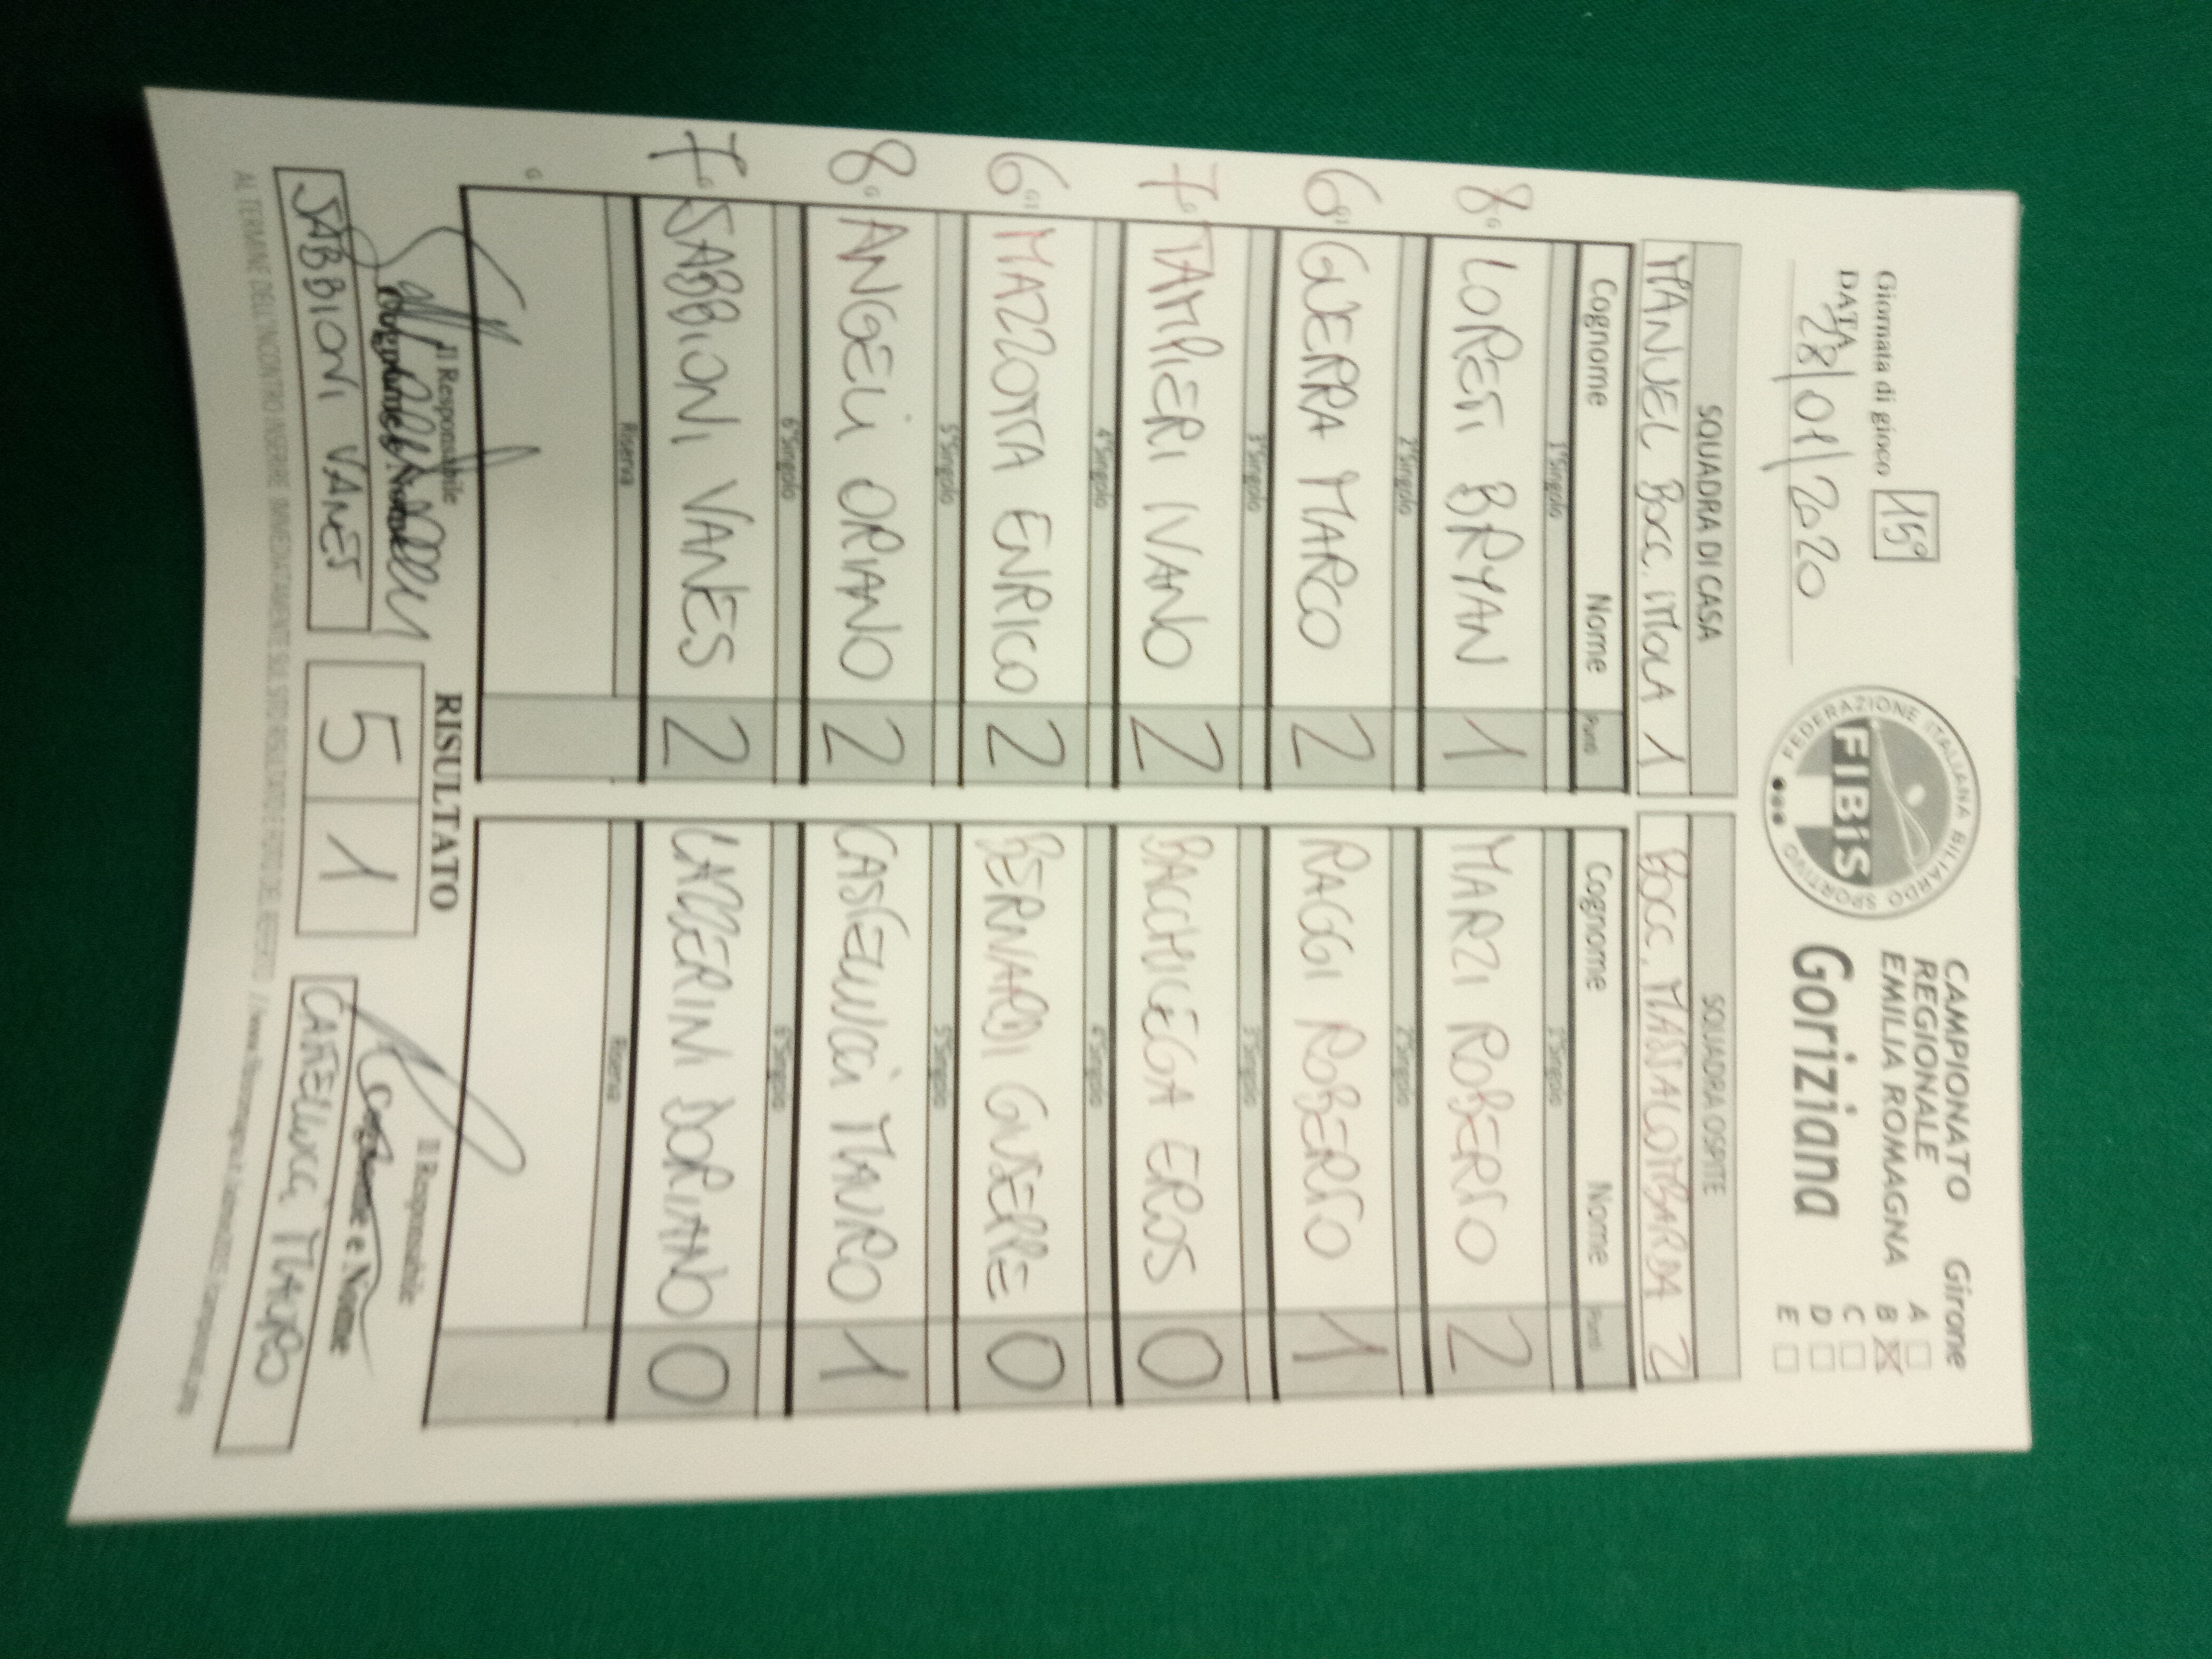 Giornata di gioco 15°
DATA
28/01/2020
FEDERAZIONE ITALIANA BILIARDO SPORTIVO
FIBiS
CAMPIONATO
REGIONALE
EMILIA ROMAGNA
Goriziana
Girone
A
B X
C
D
E
SQUADRA DI CASA SQUADRA OSPITE
MANUEL BOCC. IMOLA 1 BOCC. MASSALOMBARDA 2
Cognome Nome Punti Cognome Nome Punti
1°Singolo 1°Singolo
8 G LORETI BRYAN 1 MARZI ROBERTO 2
2°Singolo 2°Singolo
6 G1 GUERRA MARCO 2 RAGGI ROBERTO 1
3°Singolo 3°Singolo
7 G TAMPIERI IVANO 2 BACCHIEGA EROS 0
4°Singolo 4°Singolo
6 G1 MAZZOTTA ENRICO 2 BERNARDI GIUSEPPE 0
5°Singolo 5°Singolo
8 G ANGELI ORIANO 2 CASTELLUCCI MAURO 1
6°Singolo 6°Singolo
7 G SABBIONI VANES 2 LAZZERINI DORIANO 0
Riserva Riserva
G
Il Responsabile RISULTATO Il Responsabile
Cognome e Nome Cognome e Nome
SABBIONI VANES 5 1 CASTELLUCCI MAURO
AL TERMINE DELL'INCONTRO INSERIRE IMMEDIATAMENTE SUL SITO RISULTATO E FOTO DEL REFERTO